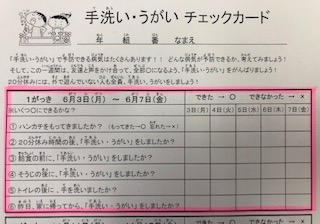 手洗い・うがい チェックカード
年 組 番 なまえ
「手洗い・うがい」で予防できる病気はたくさんあります！！ どんな病気が予防できるか、考えてみましょう！
そして、この一週間は、友達と声をかけ合って、全部〇になるよう、「手洗い・うがい」をがんばりましょう！
20分休みには、外で遊んでいない人も全員、手洗い、うがいをしましょう！
1がっき 6月3日(月) ～ 6月7日(金) できた → 〇 できなかった → ×
※いくつ〇にできるかな？ 3日(月) 4日(火) 5日(水) 6日(木) 7日(金)
① ハンカチをもってきましたか？ (もってきた→〇 忘れた→×)
② 20分休み時間の後、「手洗い・うがい」をしましたか？
③ 給食の前に、「手洗い・うがい」をしましたか？
④ そうじの後に、「手洗い・うがい」をしましたか？
⑤ トイレの後に、手を洗いましたか？
⑥ 昨日、家に帰ってから、「手洗い・うがい」をしましたか？